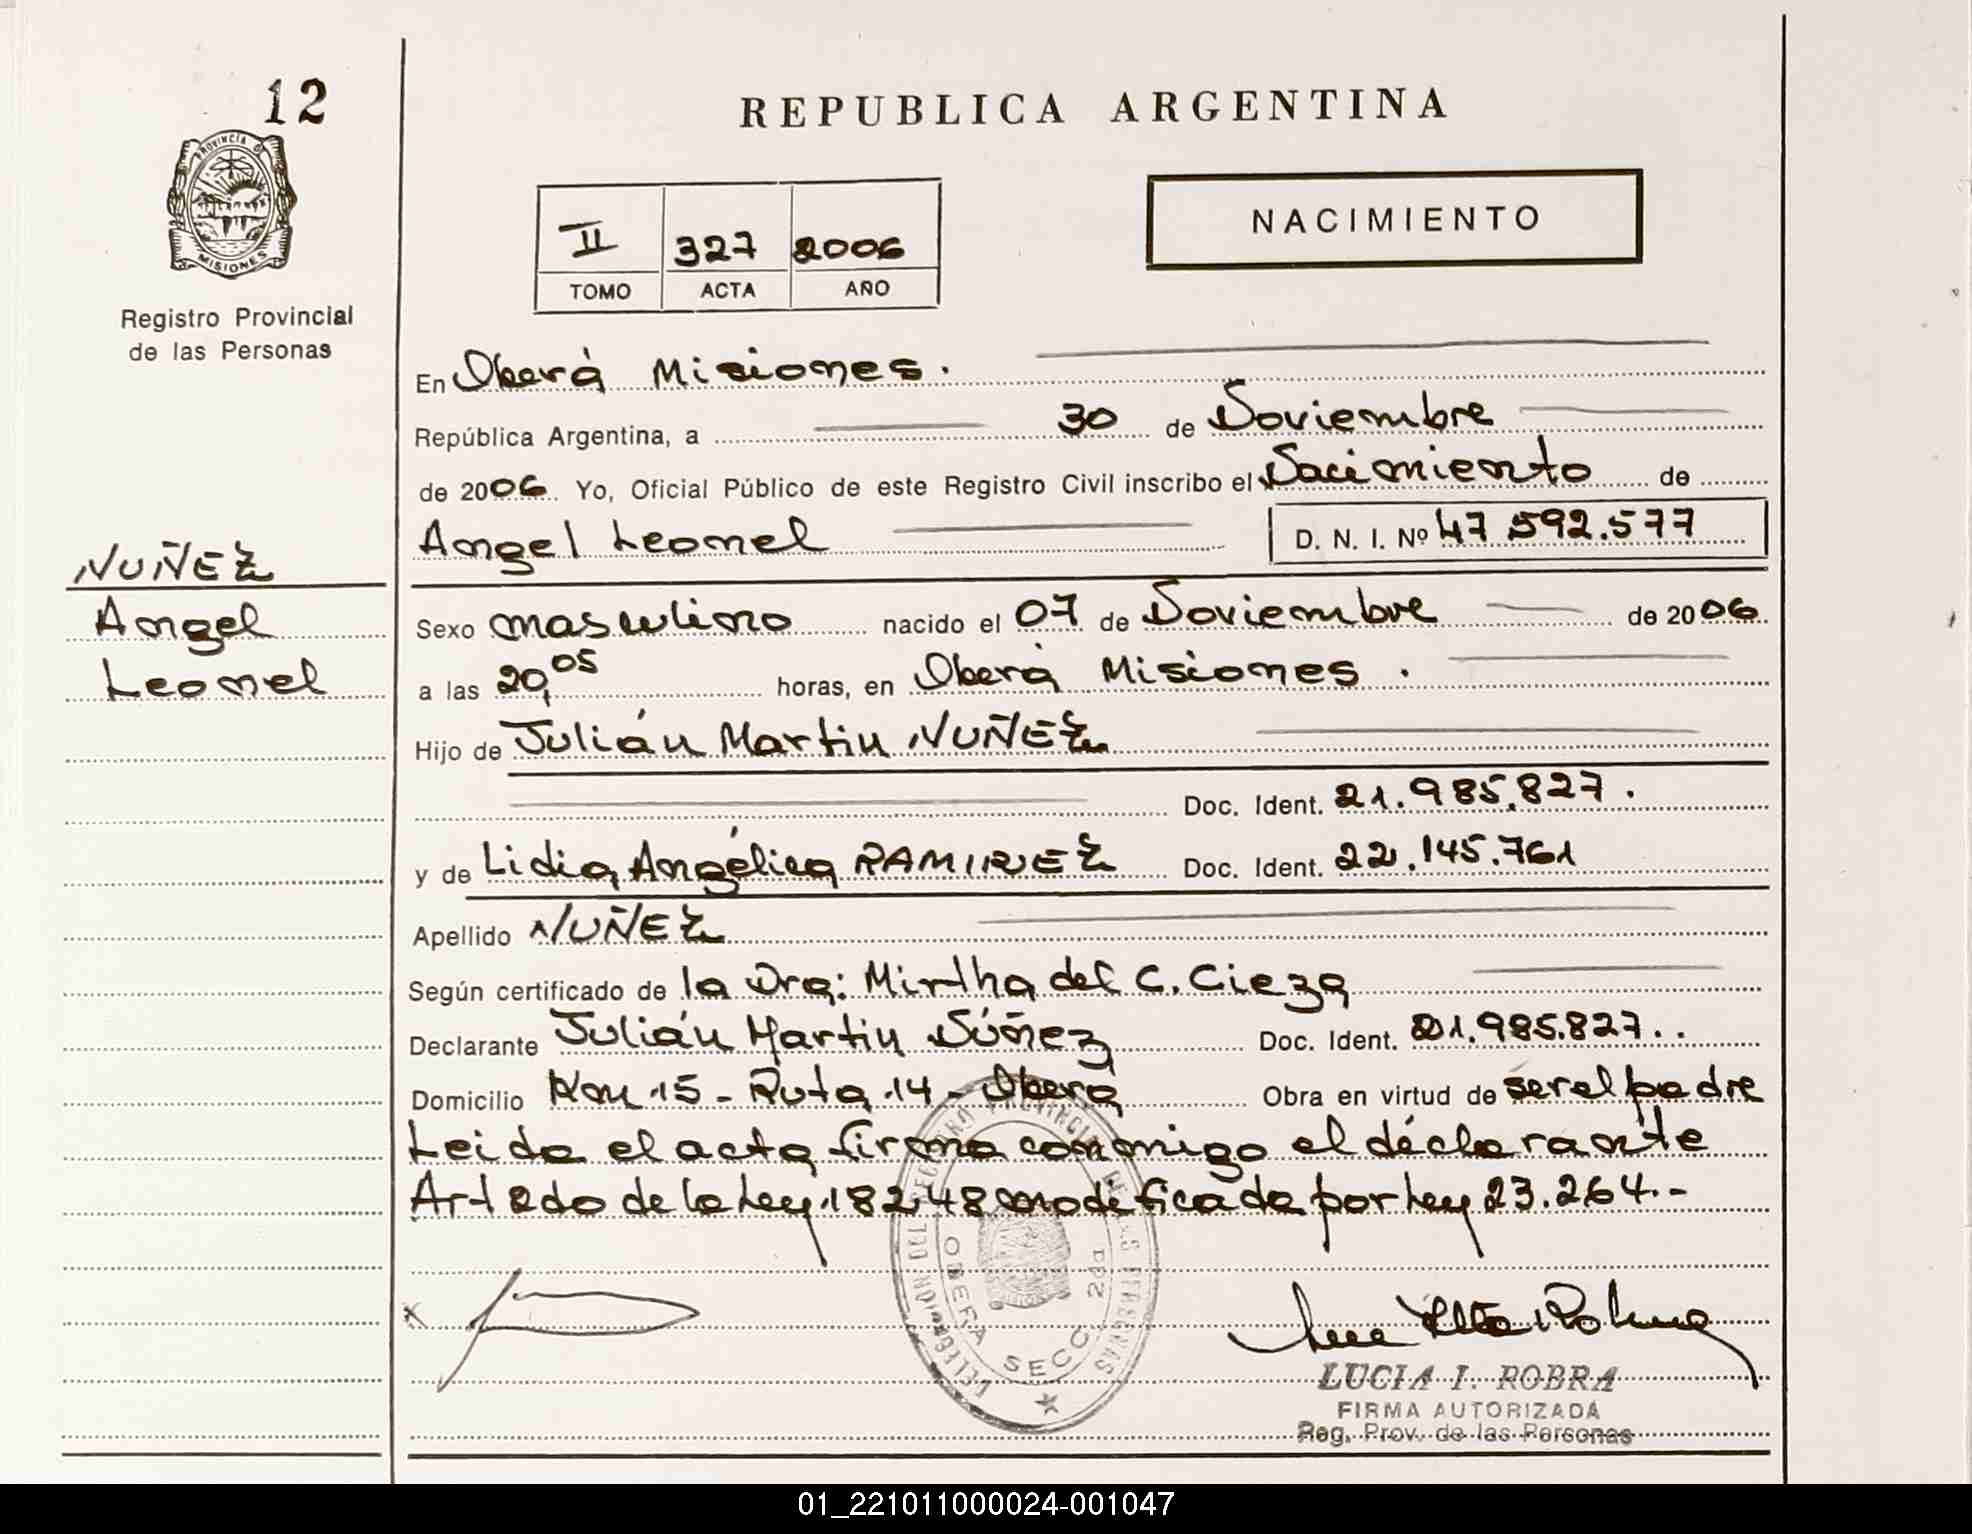 12
REPUBLICA ARGENTINA
PROVINCIA D
MISIONES
Registro Provincial
de las Personas
II 327 2006
TOMO ACTA AÑO
NACIMIENTO
En Oberá Misiones.
República Argentina, a 30 de Noviembre
de 2006 Yo, Oficial Público de este Registro Civil inscribo el Nacimiento de
Angel Leonel D. N. I. Nº 47.592.577
NUÑEZ
Angel
Leonel
Sexo masculino nacido el 07 de Noviembre de 2006.
a las 20,05 horas, en Oberá Misiones.
Hijo de Julián Martin NUÑEZ
Doc. Ident. 21.985.827.
y de Lidia Angélica RAMIREZ Doc. Ident. 22.145.761
Apellido NUÑEZ
Según certificado de la Dra: Mirtha del C. Cieza
Declarante Julián Martin Núñez Doc. Ident. 21.985.827..
Domicilio Km 15 - Ruta 14 - Oberá Obra en virtud de ser el padre
Leida el acta firma conmigo el declarante
Art 2do de la Ley 18248 modificada por Ley 23.264.-
DELEGACION DEL REGISTRO PROVINCIAL DE LAS PERSONAS
OBERA SECC 2da
LUCIA I. ROBRA
FIRMA AUTORIZADA
Reg. Prov. de las Personas
01_221011000024-001047